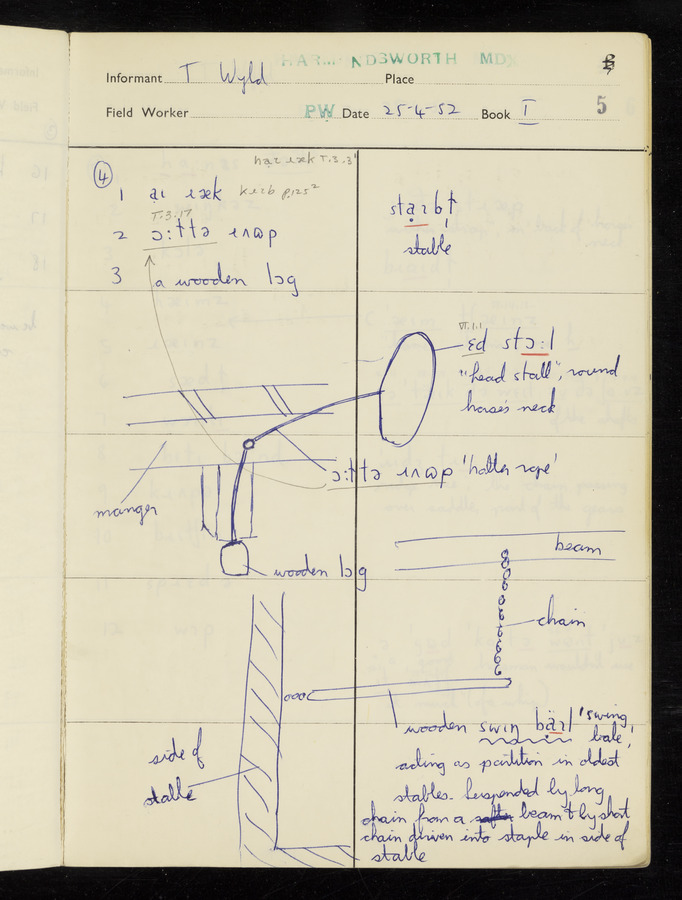 HARMONDSWORTH MDX
Informant T Wyld Place
Field Worker PW Date 25-4-52 Book I 5
haɪ ɹæk T.3.3
④
1 aɪ ɹæk kerb p.125²
T.3.17
2 ɔ:ttə ɹʌɷp
3 a wooden lɔg
staɪbɫ
stable
VI.1.1
ɛd stɔ:l
"head stall", round
horses neck
ɔ:ttə ɹʌɷp 'halter rope'
manger
wooden lɔg
beam
chain
wooden swɪŋ bäɪl 'swing
bale',
acting as partition in oldest
stables. Suspended by long
chain from a beam & by short
chain driven into staple in side of
stable
side of
stable